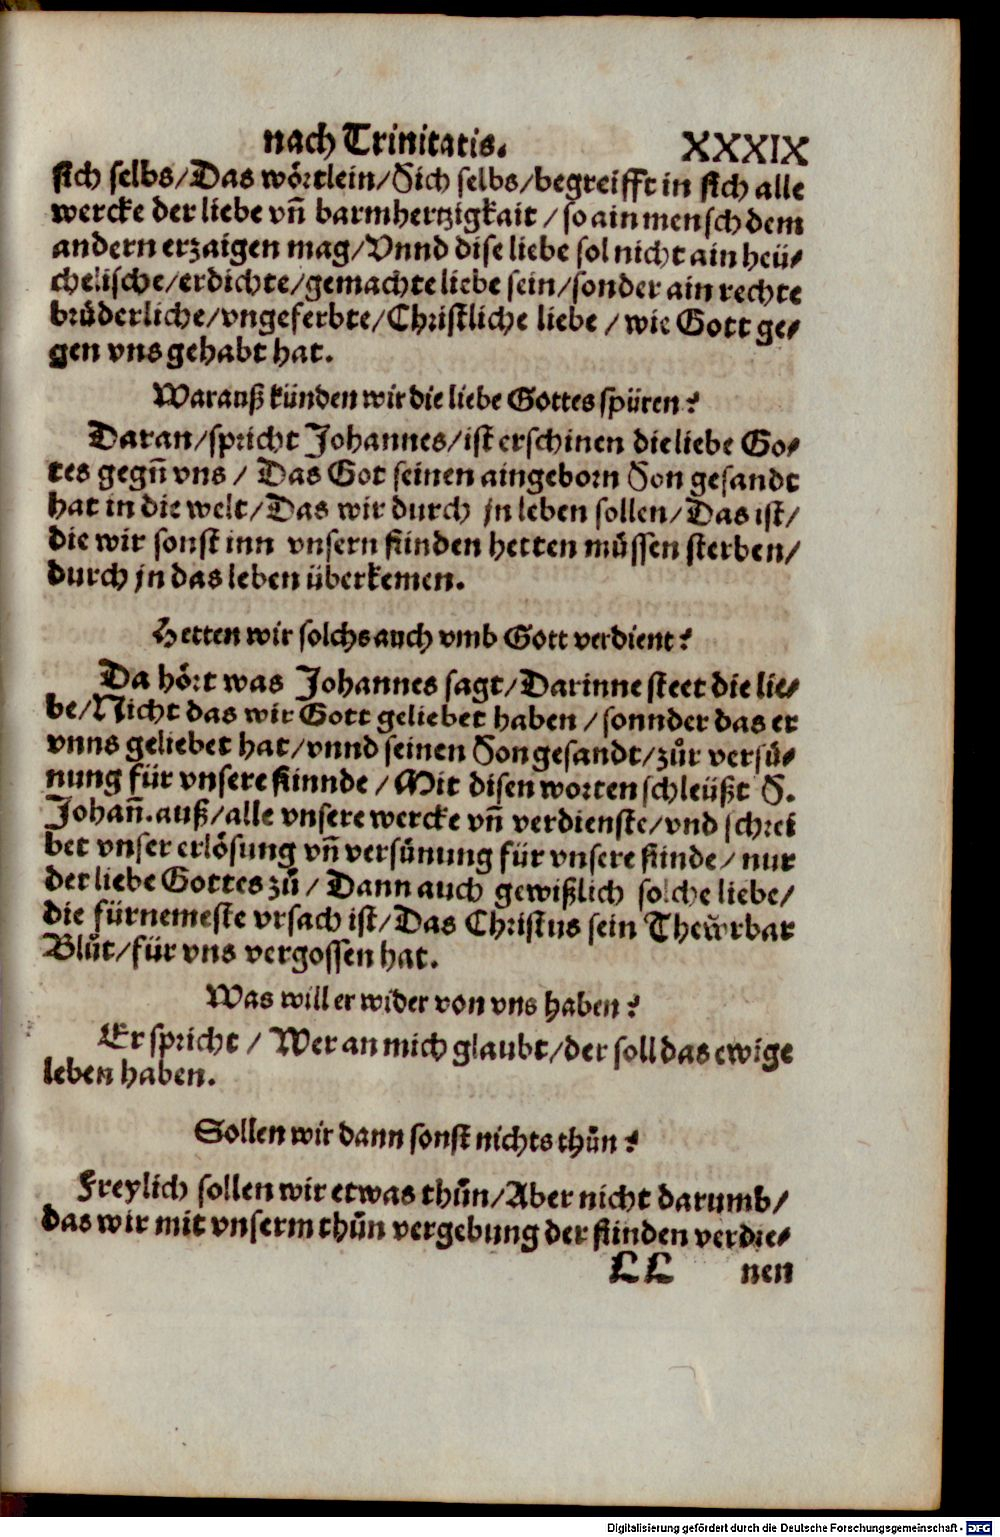 nach Trinitatis. XXXIX
sich selbs/Das wörtlein/Sich selbs/begreifft in sich alle
wercke der liebe vñ barmhertzigkait/so ain mensch dem
andern erzaigen mag/Vnnd dise liebe sol nicht ain heü-
chelische/erdichte/gemachte liebe sein/sonder ain rechte
brůderliche/vngeferbte/Christliche liebe/wie Gott ge-
gen vns gehabt hat.
Warauß künden wir die liebe Gottes spüren?
Daran/spricht Johannes/ist erschinen die liebe Go-
tes gegñ vns/Das Got seinen aingeborn Son gesandt
hat in die welt/Das wir durch jn leben sollen/Das ist/
die wir sonst inn vnsern sünden hetten müssen sterben/
durch jn das leben überkemen.
Hetten wir solchs auch vmb Gott verdient?
Da hört was Johannes sagt/Darinne steet die lie-
be/Nicht das wir Gott geliebet haben/sonnder das er
vnns geliebet hat/vnnd seinen Son gesandt/zůr versü-
nung für vnsere sünnde/Mit disen worten schleüßt S.
Johañ.auß/alle vnsere wercke vñ verdienste/vnd schrei
bet vnser erlösung vñ versünung für vnsere sünde/nur
der liebe Gottes zů/Dann auch gewißlich solche liebe/
die fürnemeste vrsach ist/Das Christus sein Thewrbar
Blůt/für vns vergossen hat.
Was will er wider von vns haben?
Er spricht/Wer an mich glaubt/der soll das ewige
leben haben.
Sollen wir dann sonst nichts thůn?
Freylich sollen wir etwas thůn/Aber nicht darumb/
das wir mit vnserm thůn vergebung der sünden verdie-
LL nen
Digitalisierung gefördert durch die Deutsche Forschungsgemeinschaft - DFG